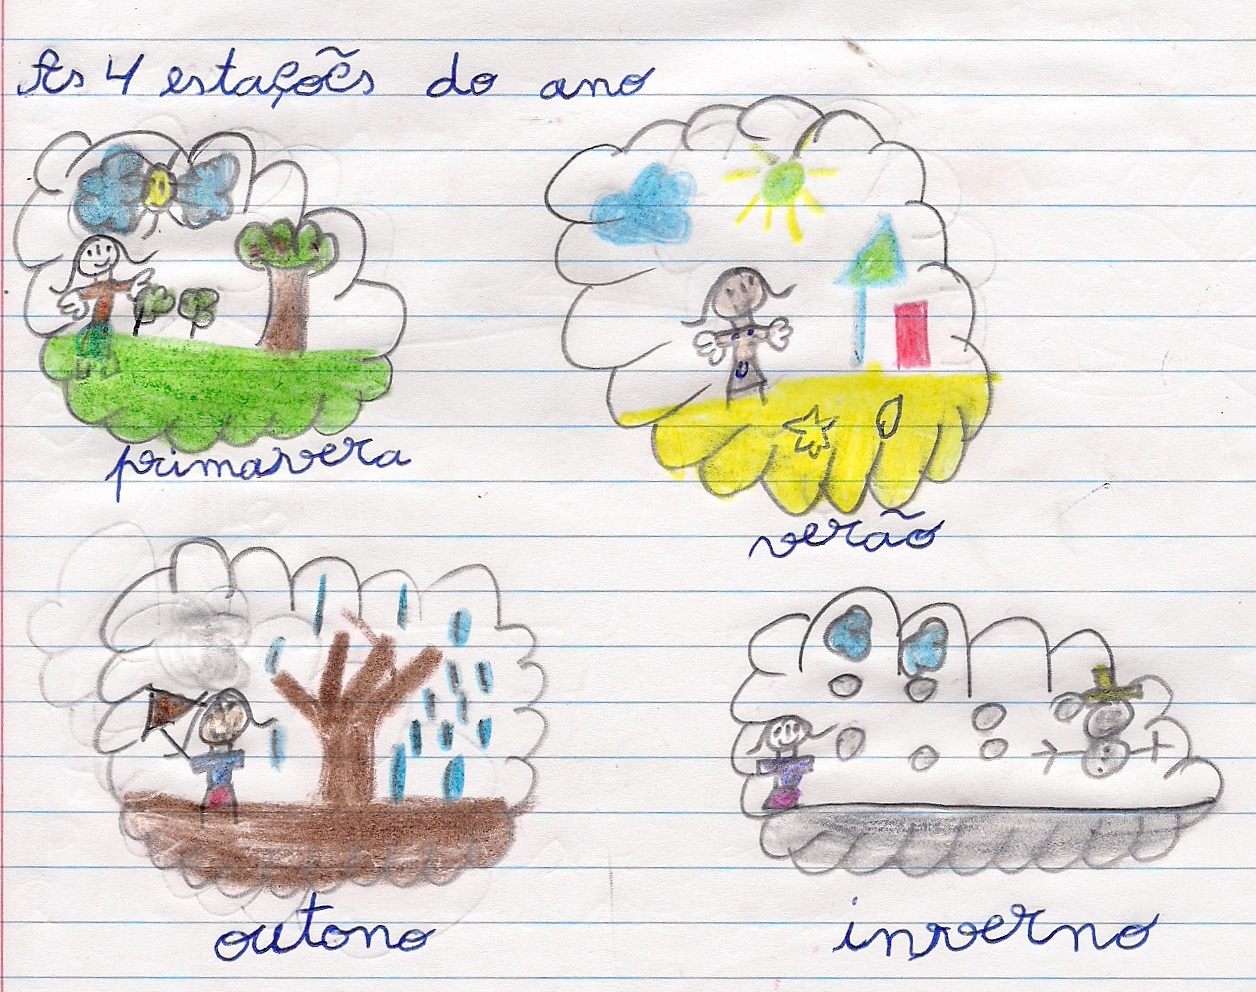 As 4 estações do ano
primavera
verão
outono
inverno